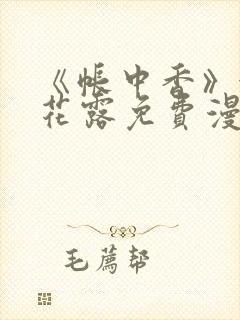 《帐中香》
花露免费漫
毛荐帮